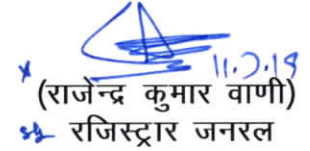 11.7.19
(राजेन्द्र कुमार वाणी)
रजिस्ट्रार जनरल